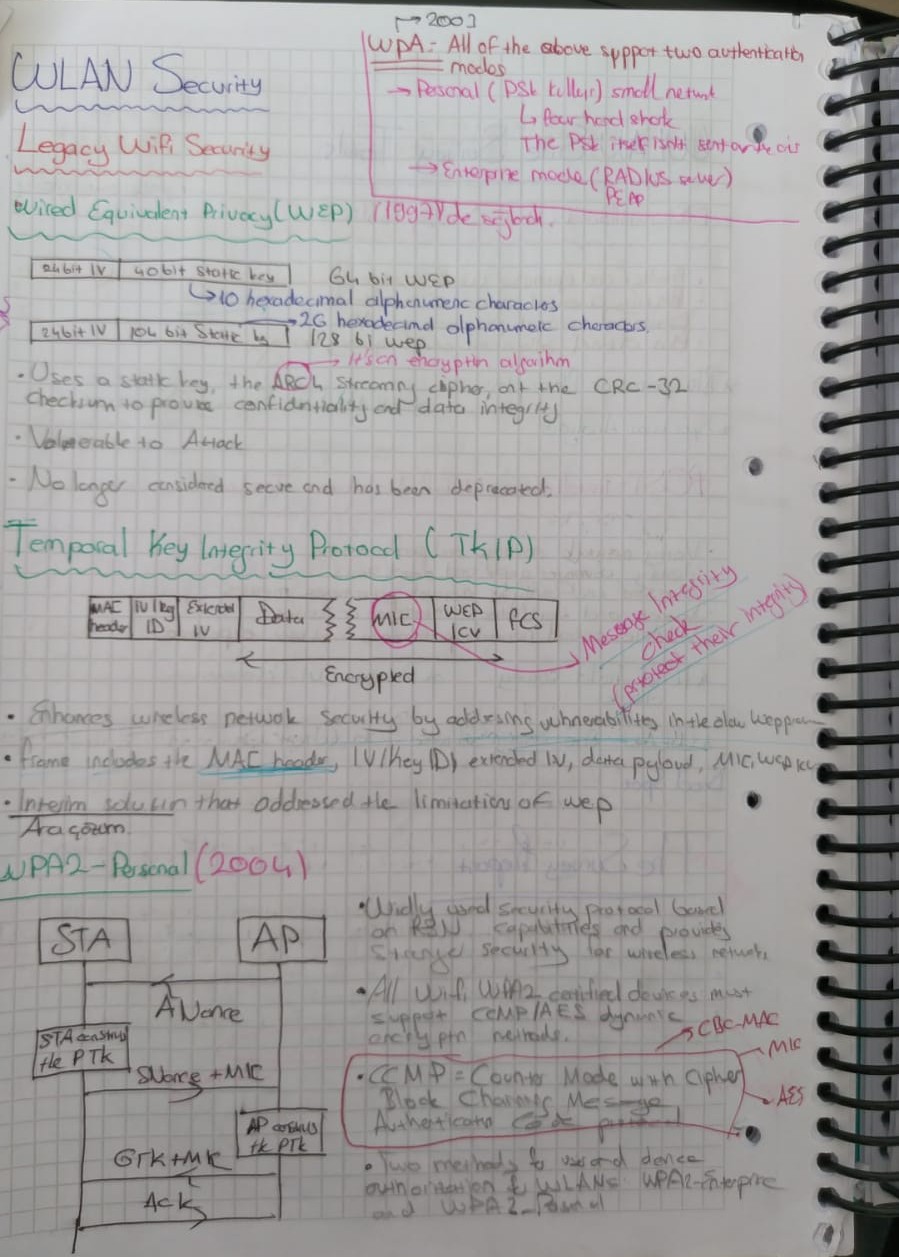 WLAN Security
Legacy Wifi Security
→ 2003
WPA = All of the above sppport two authentication
modes
→ Personal (PSK ) small network
↳ four hand shake
The PSK itself isn't sent on the air
→ Enterprise mode (RADIUS server)
PEAP
Wired Equivalent Privacy (WEP) (1997)
24bit IV | 40bit static key 64 bit WEP
↳ 10 hexadecimal alphanumeric characters
→ 26 hexadecimal alphanumeric characters.
24bit IV | 104 bit Static key 128 bit wep
→ It's an encryption algorithm
• Uses a static key, the ARC4 streaming cipher, and the CRC-32
checksum to provide confidentiality and data integrity
• Vulnerable to Attack
- No longer considered secure and has been deprecated.
Temporal Key Integrity Protocol (TKIP)
MAC header | IV/Key ID | Extended IV | Data | MIC | WEP ICV | FCS
Encrypted
Message Integrity
check
(protect their integrity)
• Enhances wireless network security by addressing vulnerabilities in the
• Frame includes the MAC header, IV/Key(ID) extended IV, data pyloud, MIC, WEP ICV
• Interim solution that addressed the limitation of wep
Ara çözüm.
WPA2-Personal (2004)
STA AP
ANonce
STA construct
the PTK
SNonce + MIC
AP constructs
the PTK
GTK+MIC
Ack
• Widly used security protocol based
on RSN capabilities and provides
stronger security for wireless network.
• All Wifi WPA2 certified devices must
support CCMP/AES dynamic
encryption methods.
→ CBC-MAC
→ MIC
→ AES
• CCMP = Counter Mode with Cipher
Block Chaining Message
Authentication Code protocol
• Two methods to user and device
authorization to WLANs WPA2-Enterprise
and WPA2-Personal